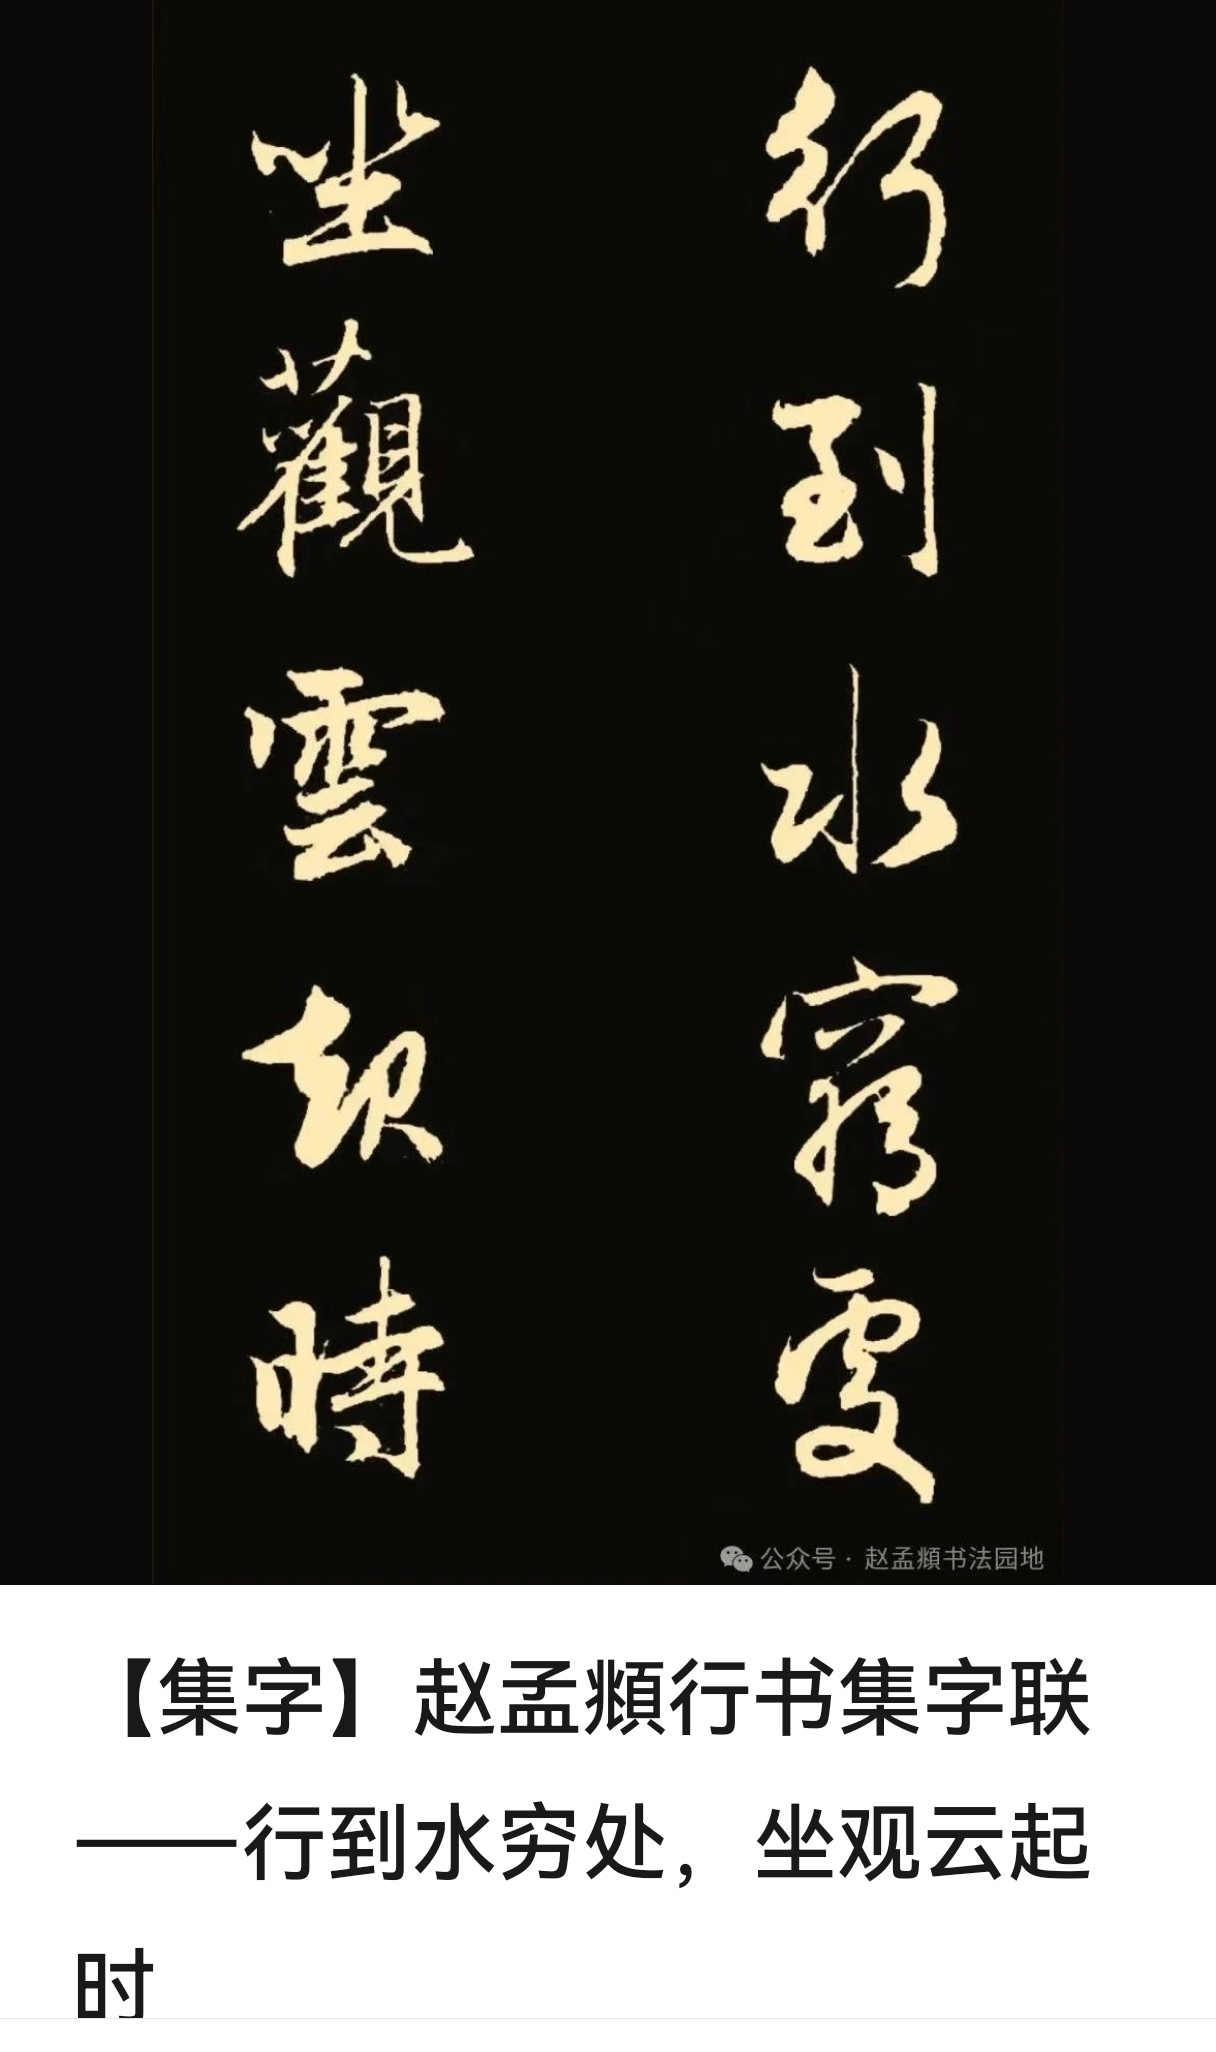 行到水窮處
坐觀雲起時
公众号 · 赵孟頫书法园地
【集字】赵孟頫行书集字联
——行到水穷处，坐观云起
时